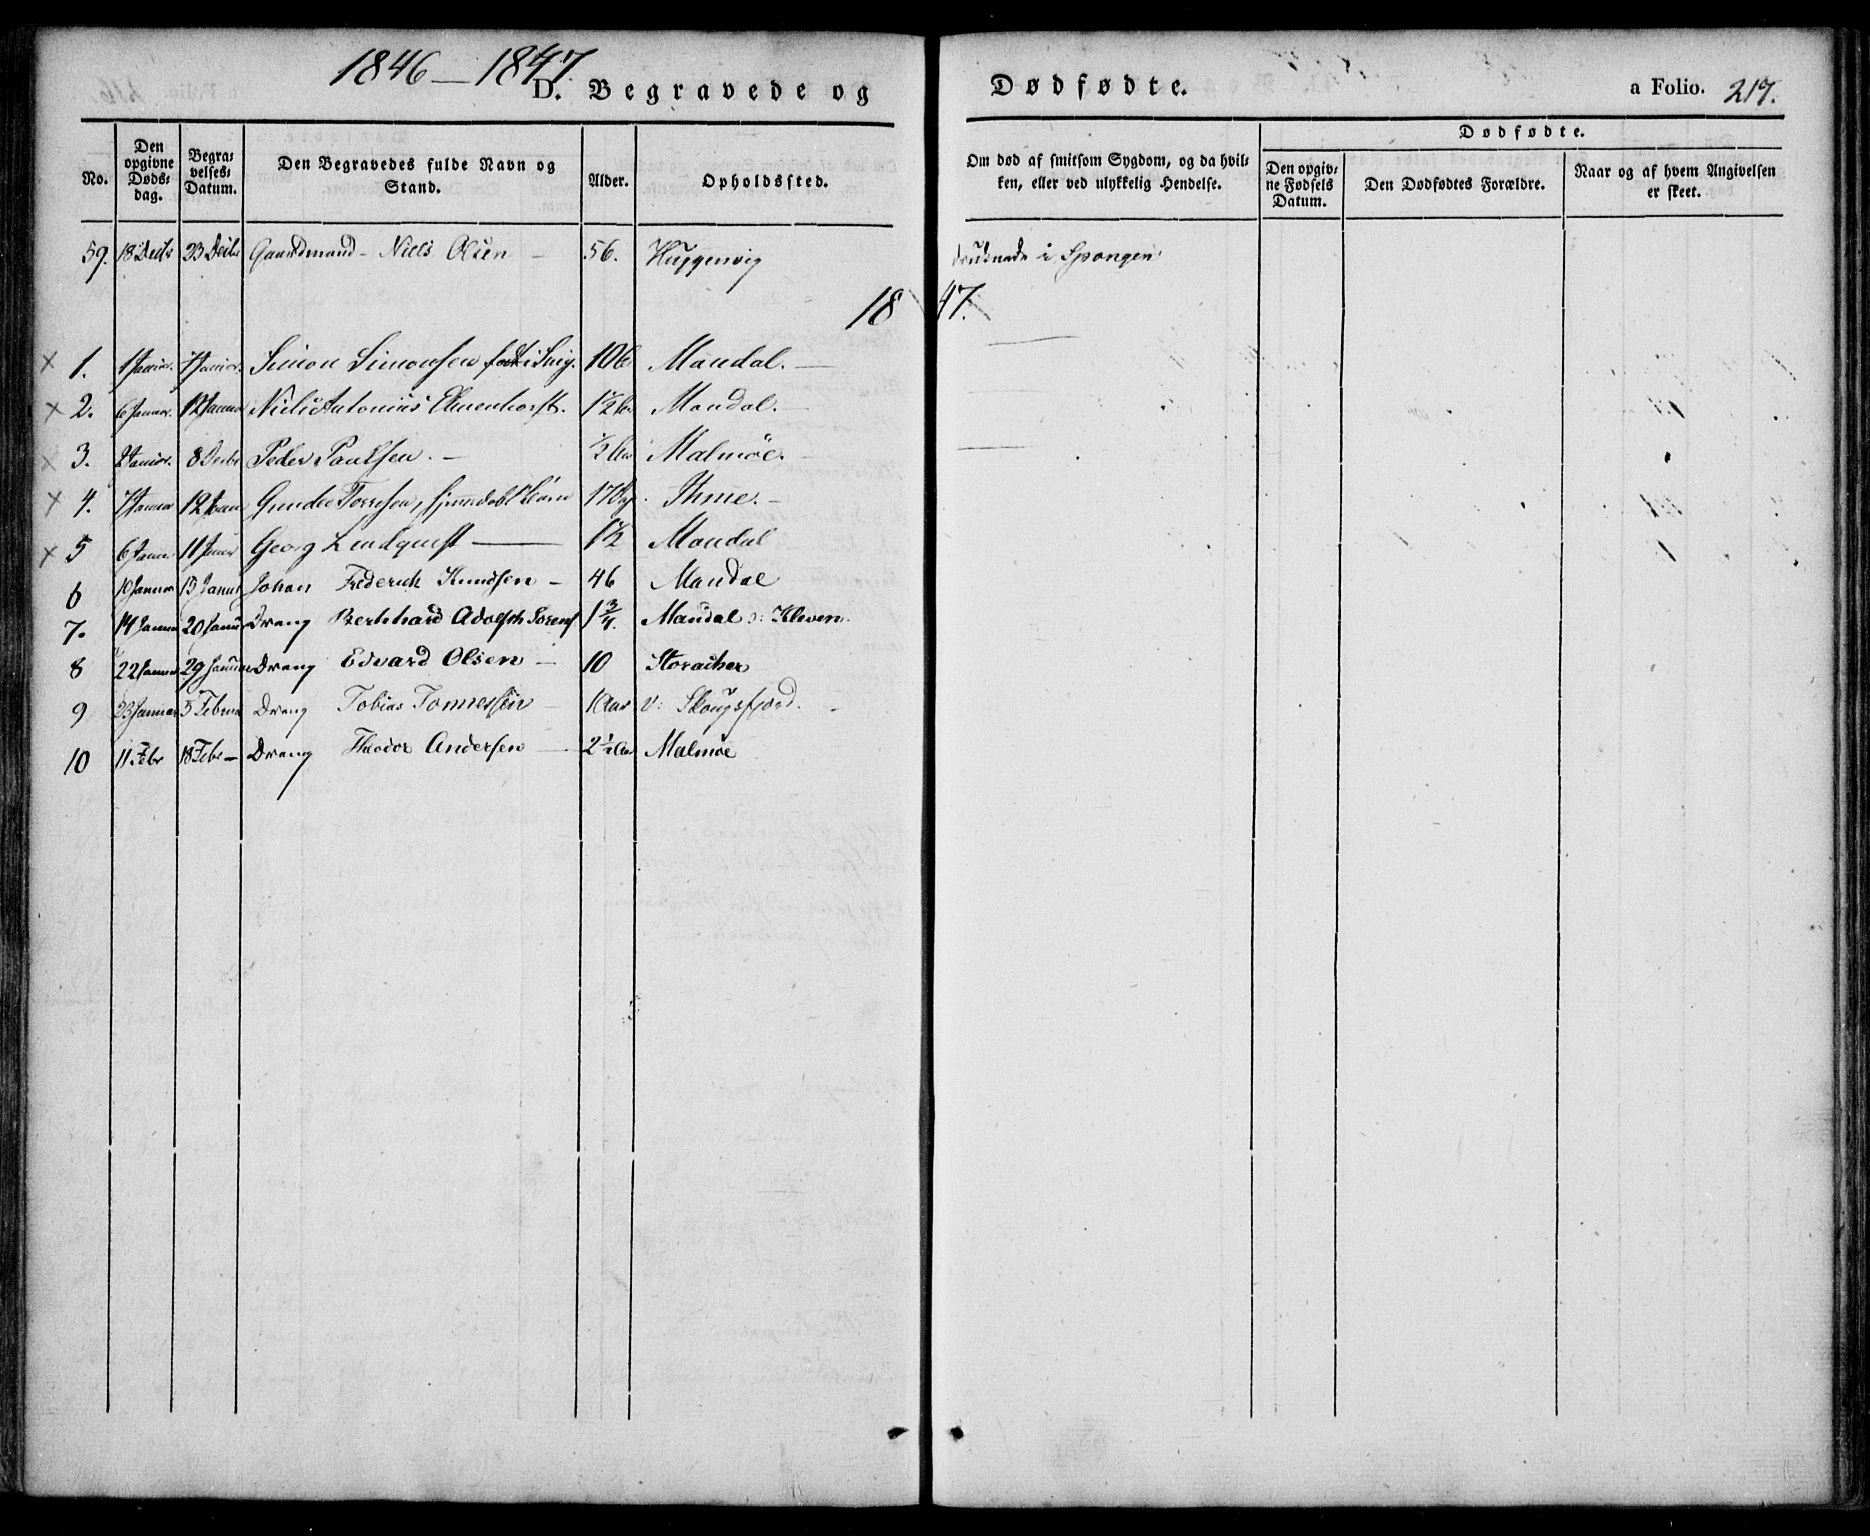 1846–1847
D. Begravede og Dødfødte.
a Folio. 217.
No.
Den opgivne Døds-dag.
Begra-velses-Datum.
Den Begravedes fulde Navn og Stand.
Alder.
Opholdssted.
Om død af smitsom Sygdom, og da hvil-ken, eller ved ulykkelig Hendelse.
Dødfødte.
Den opgiv-ne Fødsels Datum.
Den Dødfødtes Forældre.
Naar og af hvem Angivelsen er skeet.
59. 18 Decbr 23 Decbr Gaardmand – Niels Olsen – 56. druknede i Spangen
1847.
1. 1 Januar. 7 Januar. Simon Simonsen Mandal. –
2. 6 Januar. 12 Januar Niels Antonius 1½ Aar Mandal. –
3. 2 Januar. 8 Decbr Peder Paulsen. – ½ Aar Malmöe. –
4. 7 Januar 12 Janu Gunder Torresen, 17 Dag. Ihme. –
5 6 Janu 11 Janu Georg Lindquist – 1½ Mandal
6 10 Januar 13 Januar Johan Frederich Knudsen – 46 Mandal
7. 14 Januar 20 Januar Dreng Bernhard Adolph Sorens 1¾ Mandal v: Kleven.
8 22 Januar 29 Januar Dreng Edvard Olsen – 10 Storacher
9 23 Januar 5 Februar Dreng Tobias Tonnesen – 1 Aar v: Skougsfjord. –
10 11 Febr 18 Febr – Dreng Theodor Andersen – 2½ Aar Malmöe